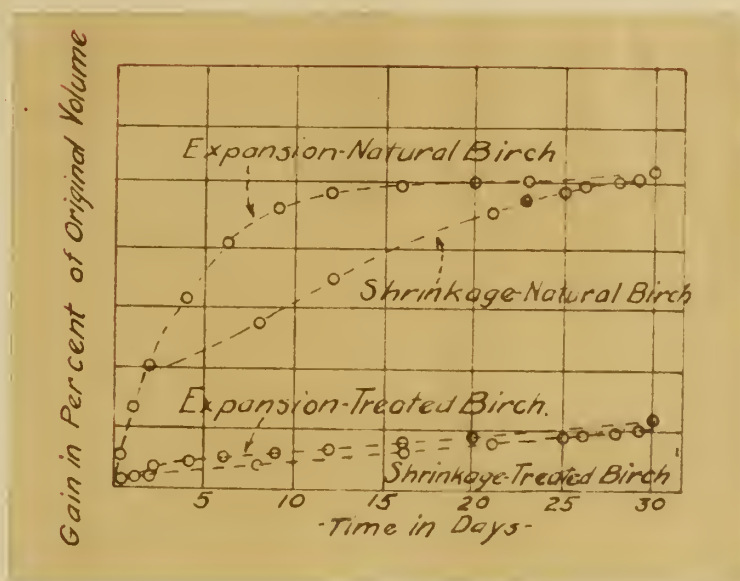 Gain in Percent of Original Volume
Expansion-Natural Birch
Shrinkage-Natural Birch
Expansion-Treated Birch.
Shrinkage-Treated Birch
5 10 15 20 25 30
-Time in Days-